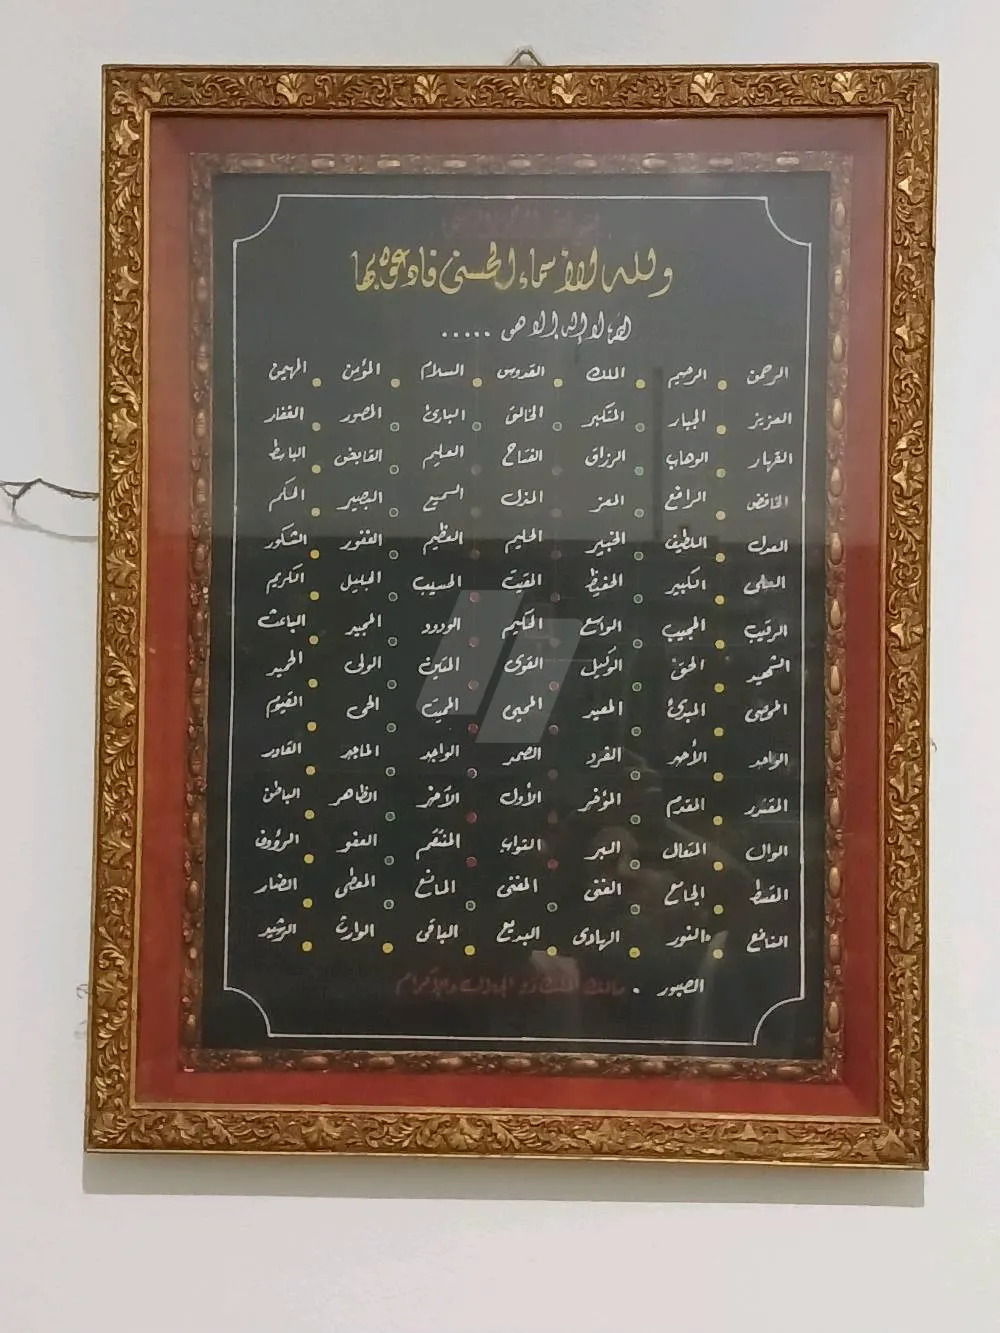 بسم الله الرحمن الرحيم
ولله الأسماء الحسنى فادعوه بها
لا إله إلا هو .....
الرحمن الرحيم الملك القدوس السلام المؤمن المهيمن
العزيز الجبار المتكبر الخالق البارئ المصور الغفار
القهار الوهاب الرزاق الفتاح العليم القابض الباسط
الخافض الرافع المعز المذل السميع البصير الحكم
العدل اللطيف الخبير الحليم العظيم الغفور الشكور
العلى الكبير الحفيظ المقيت الحسيب الجليل الكريم
الرقيب المجيب الواسع الحكيم الودود المجيد الباعث
الشهيد الحق الوكيل القوى المتين الولى الحميد
المحصى المبدئ المعيد المحيى المميت الحى القيوم
الواحد الأحد الفرد الصمد الواجد الماجد القادر
المقتدر المقدم المؤخر الأول الآخر الظاهر الباطن
الوال المتعال البر التواب المنتقم العفو الرؤوف
المقسط الجامع الغنى المغنى المانع المعطى الضار
النافع النور الهادى البديع الباقى الوارث الرشيد
الصبور . مالك الملك ذو الجلال والإكرام